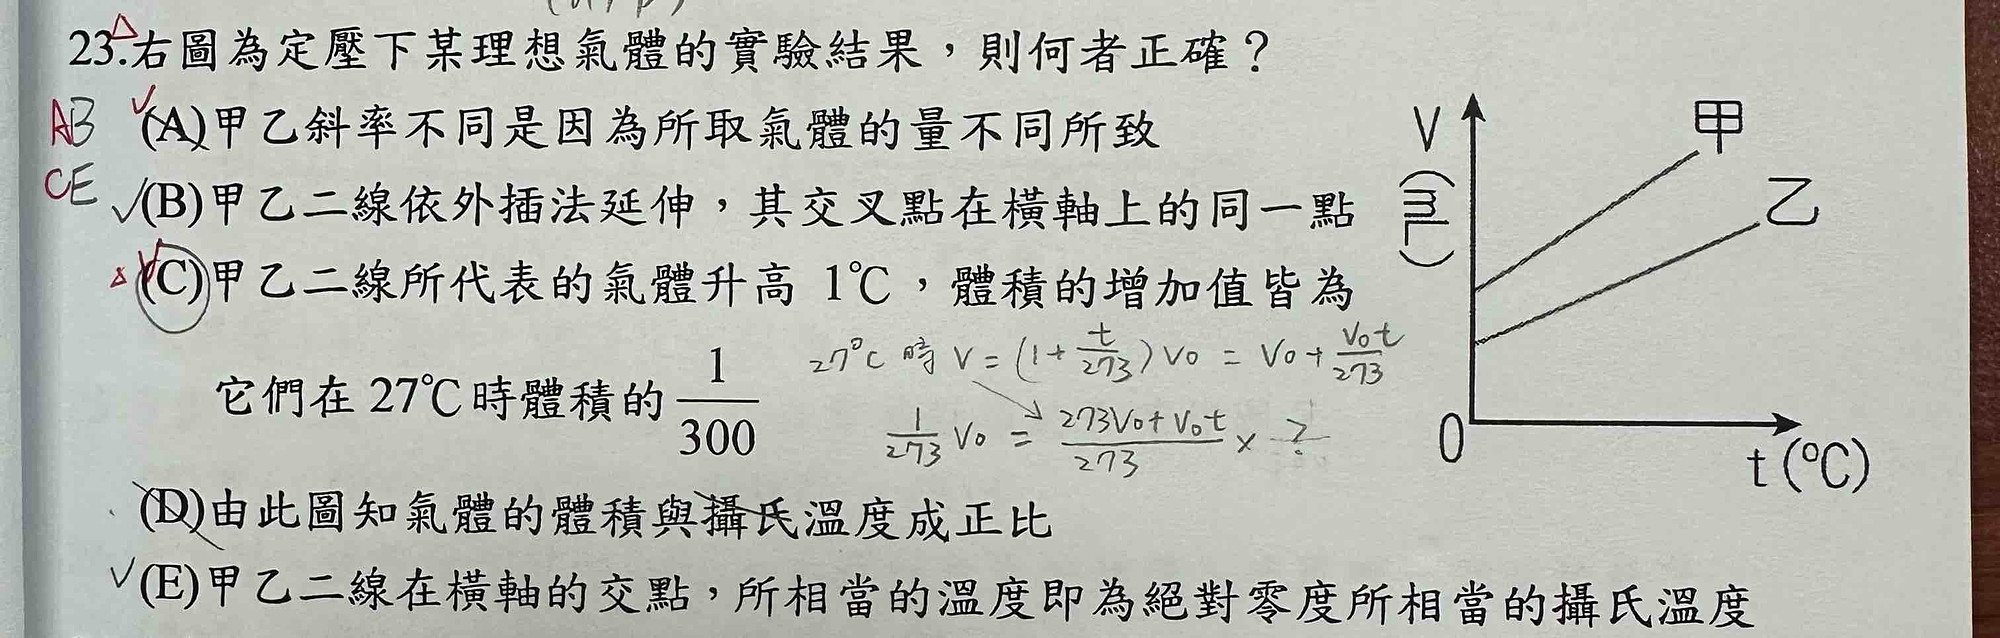 23.右圖為定壓下某理想氣體的實驗結果，則何者正確？
AB
CE
(A)甲乙斜率不同是因為所取氣體的量不同所致
(B)甲乙二線依外插法延伸，其交叉點在橫軸上的同一點
(C)甲乙二線所代表的氣體升高 1℃，體積的增加值皆為
它們在 27℃時體積的 1/300
27°C 時 V = (1 + t/273) V0 = V0 + V0t/273
1/273 V0 = 273V0 + V0t/273 × ?
(D)由此圖知氣體的體積與攝氏溫度成正比
(E)甲乙二線在橫軸的交點，所相當的溫度即為絕對零度所相當的攝氏溫度
V(mL)
甲
乙
0
t(℃)